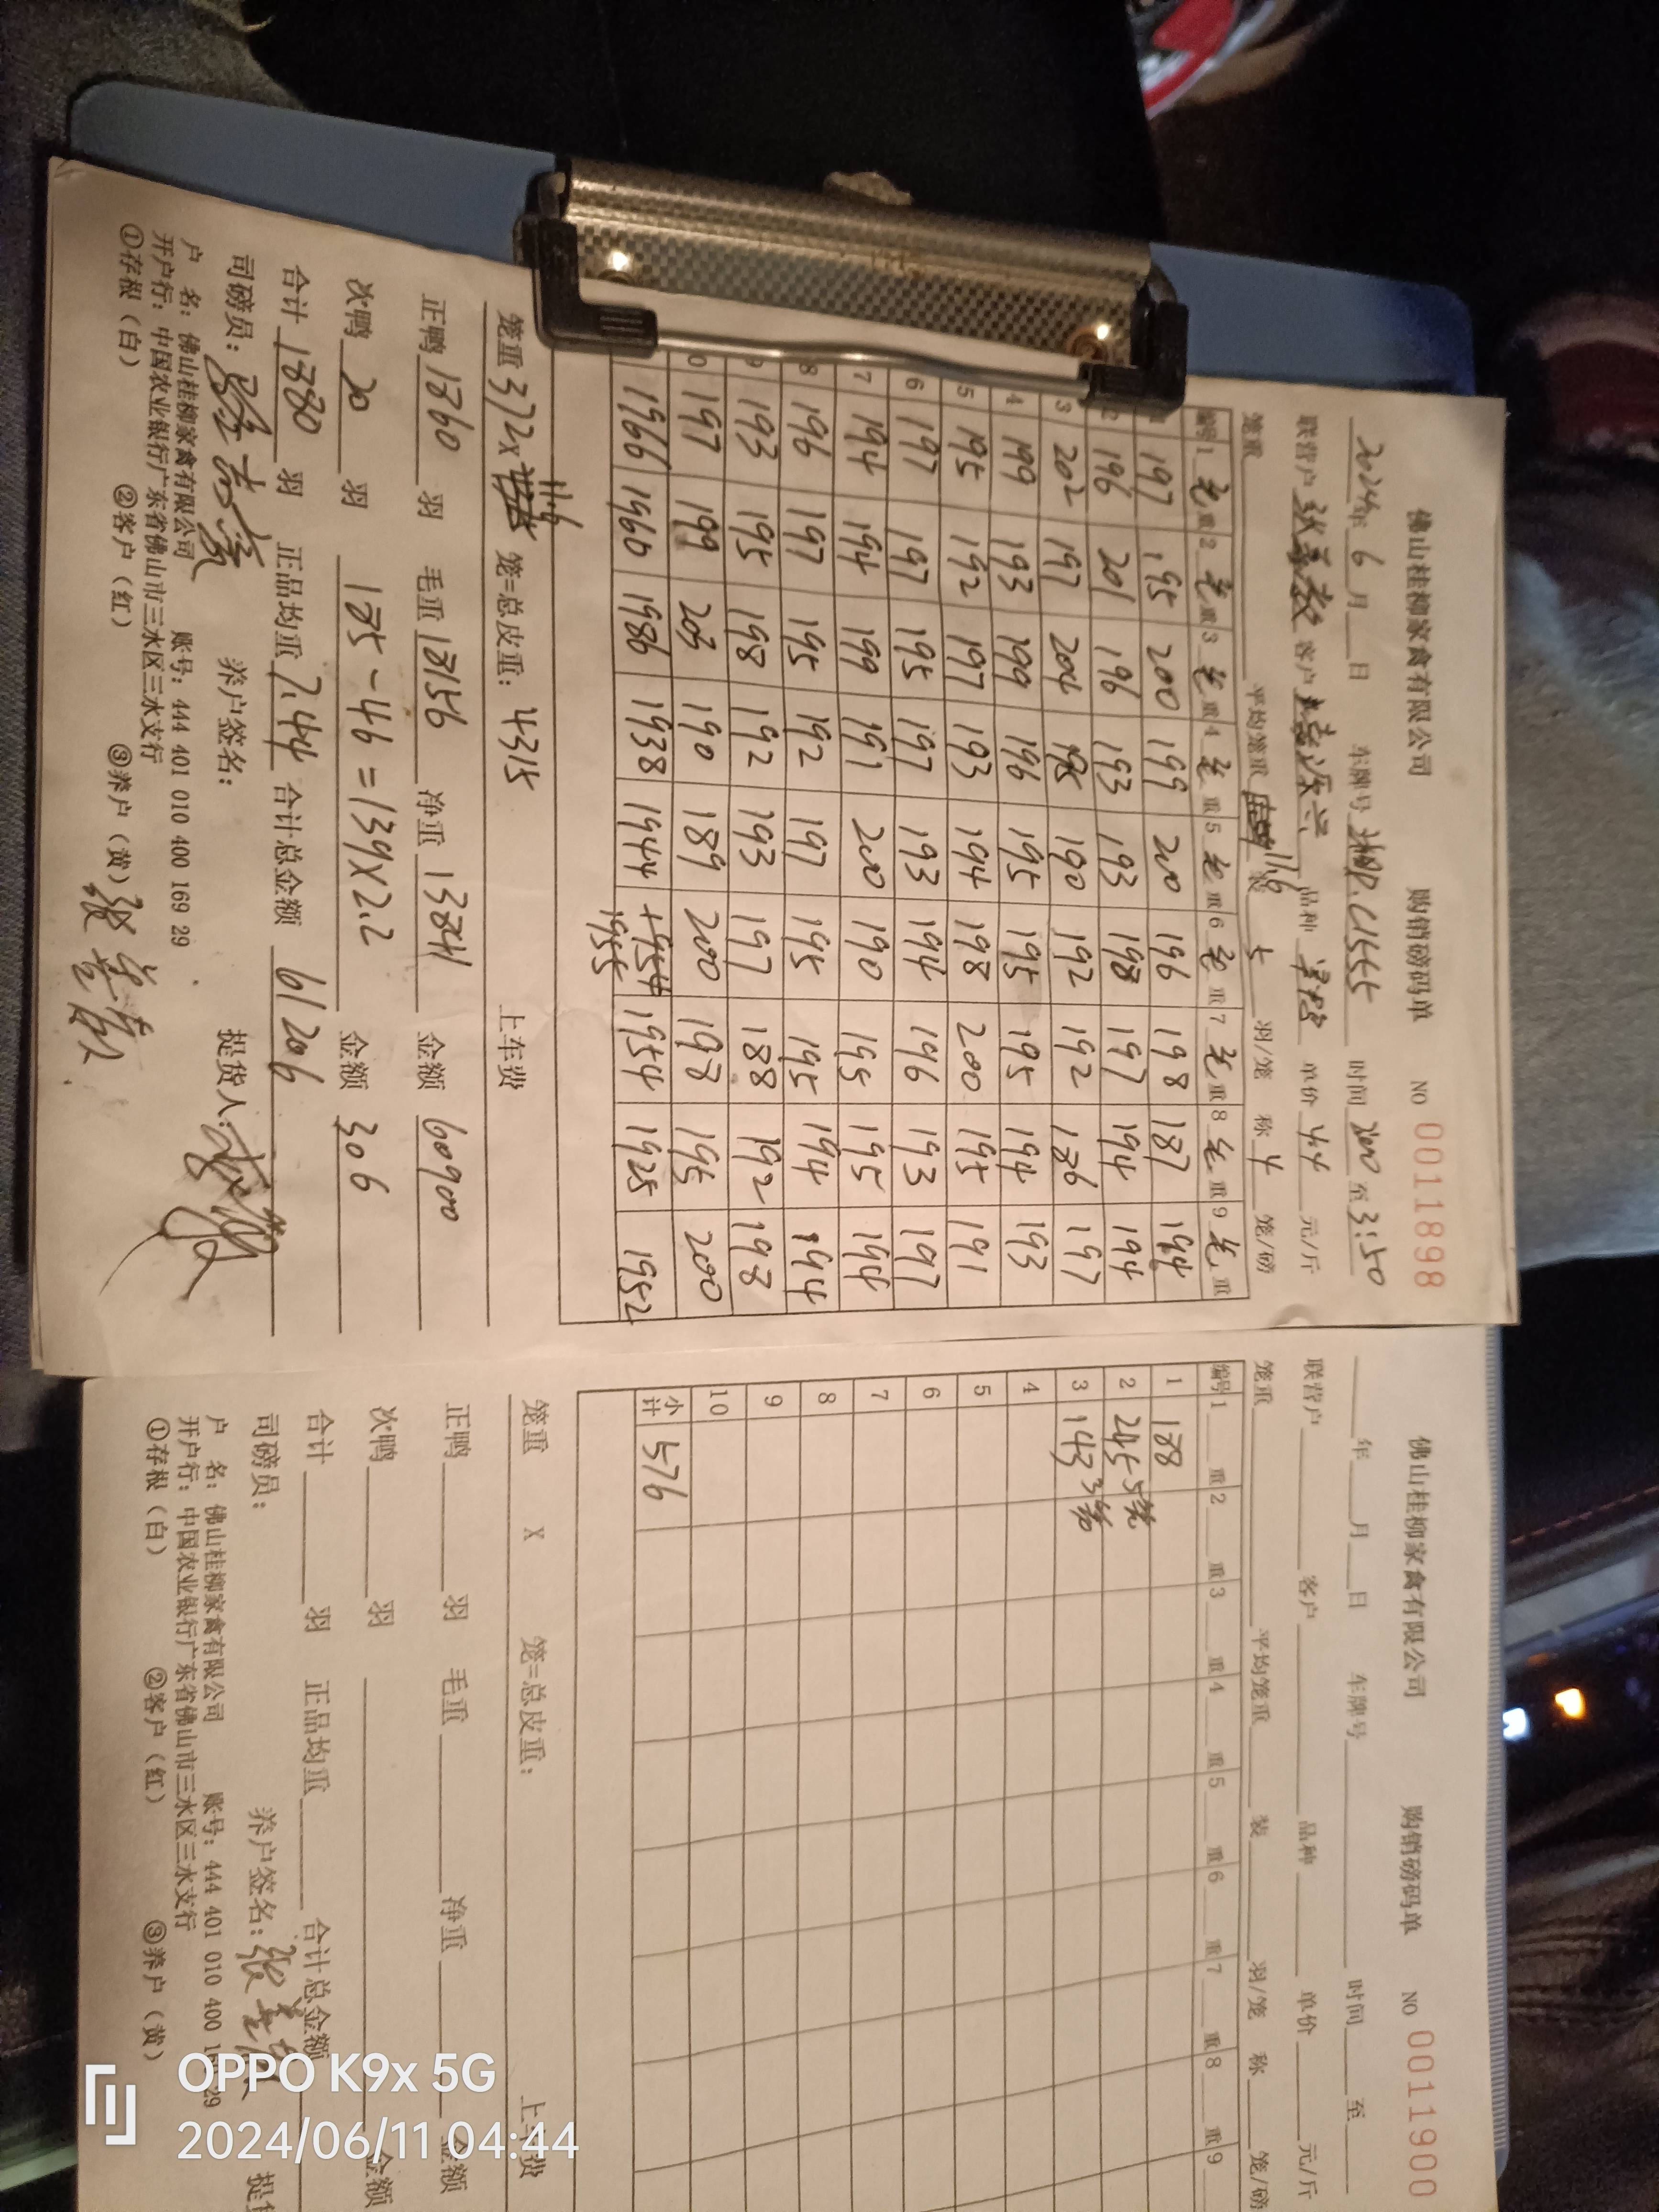 佛山桂柳家禽有限公司 购销磅码单 NO 0011898
2024年 6 月 日 车牌号 时间 200 至 3:50
联营户 客户 品种 单价 4.4 元/斤
笼重 平均笼重 11.6 装 5 羽/笼 称 4 笼/磅
编号 1 毛重 2 毛重 3 毛重 4 毛重 5 毛重 6 毛重 7 毛重 8 毛重 9 毛重
1 197 195 200 199 200 196 198 187 194
2 196 201 196 193 193 198 197 194 194
3 202 197 204 195 190 192 192 186 197
4 199 193 199 196 195 195 195 194 193
5 195 192 197 193 194 198 200 195 191
6 197 197 195 197 193 194 196 193 197
7 194 194 199 191 200 190 195 195 194
8 196 197 195 192 197 195 195 194 194
9 193 195 198 192 193 197 188 192 198
0 197 199 203 190 189 200 198 195 200
1966 1960 1986 1938 1944 1955 1954 1925 1952
笼重 372 x 11.6 笼=总皮重: 4315 上车费
正鸭 1860 羽 毛重 18156 净重 13841 金额 60900
次鸭 20 羽 185-46=139X2.2 金额 306
合计 1880 羽 正品均重 7.44 合计总金额 61206
司磅员: 养户签名: 提货人:
户 名: 佛山桂柳家禽有限公司 账号: 444 401 010 400 169 29
开户行: 中国农业银行广东省佛山市三水区三水支行
①存根(白) ②客户(红) ③养户(黄)
佛山桂柳家禽有限公司 购销磅码单 NO 0011900
年 月 日 车牌号 时间 至
联营户 客户 品种 单价 元/斤
笼重 平均笼重 装 羽/笼 称 笼/磅
编号 1 重 2 重 3 重 4 重 5 重 6 重 7 重 8 重 9
1 188
2 245 5笼
3 143 3笼
4
5
6
7
8
9
10
小计 576
笼重 X 笼=总皮重: 上车费
正鸭 羽 毛重 净重 金额
次鸭 羽 金额
合计 羽 正品均重 合计总金额
司磅员: 养户签名: 提货
户 名: 佛山桂柳家禽有限公司 账号: 444 401 010 400 29
开户行: 中国农业银行广东省佛山市三水区三水支行
①存根(白) ②客户(红) ③养户(黄)
OPPO K9x 5G
2024/06/11 04:44